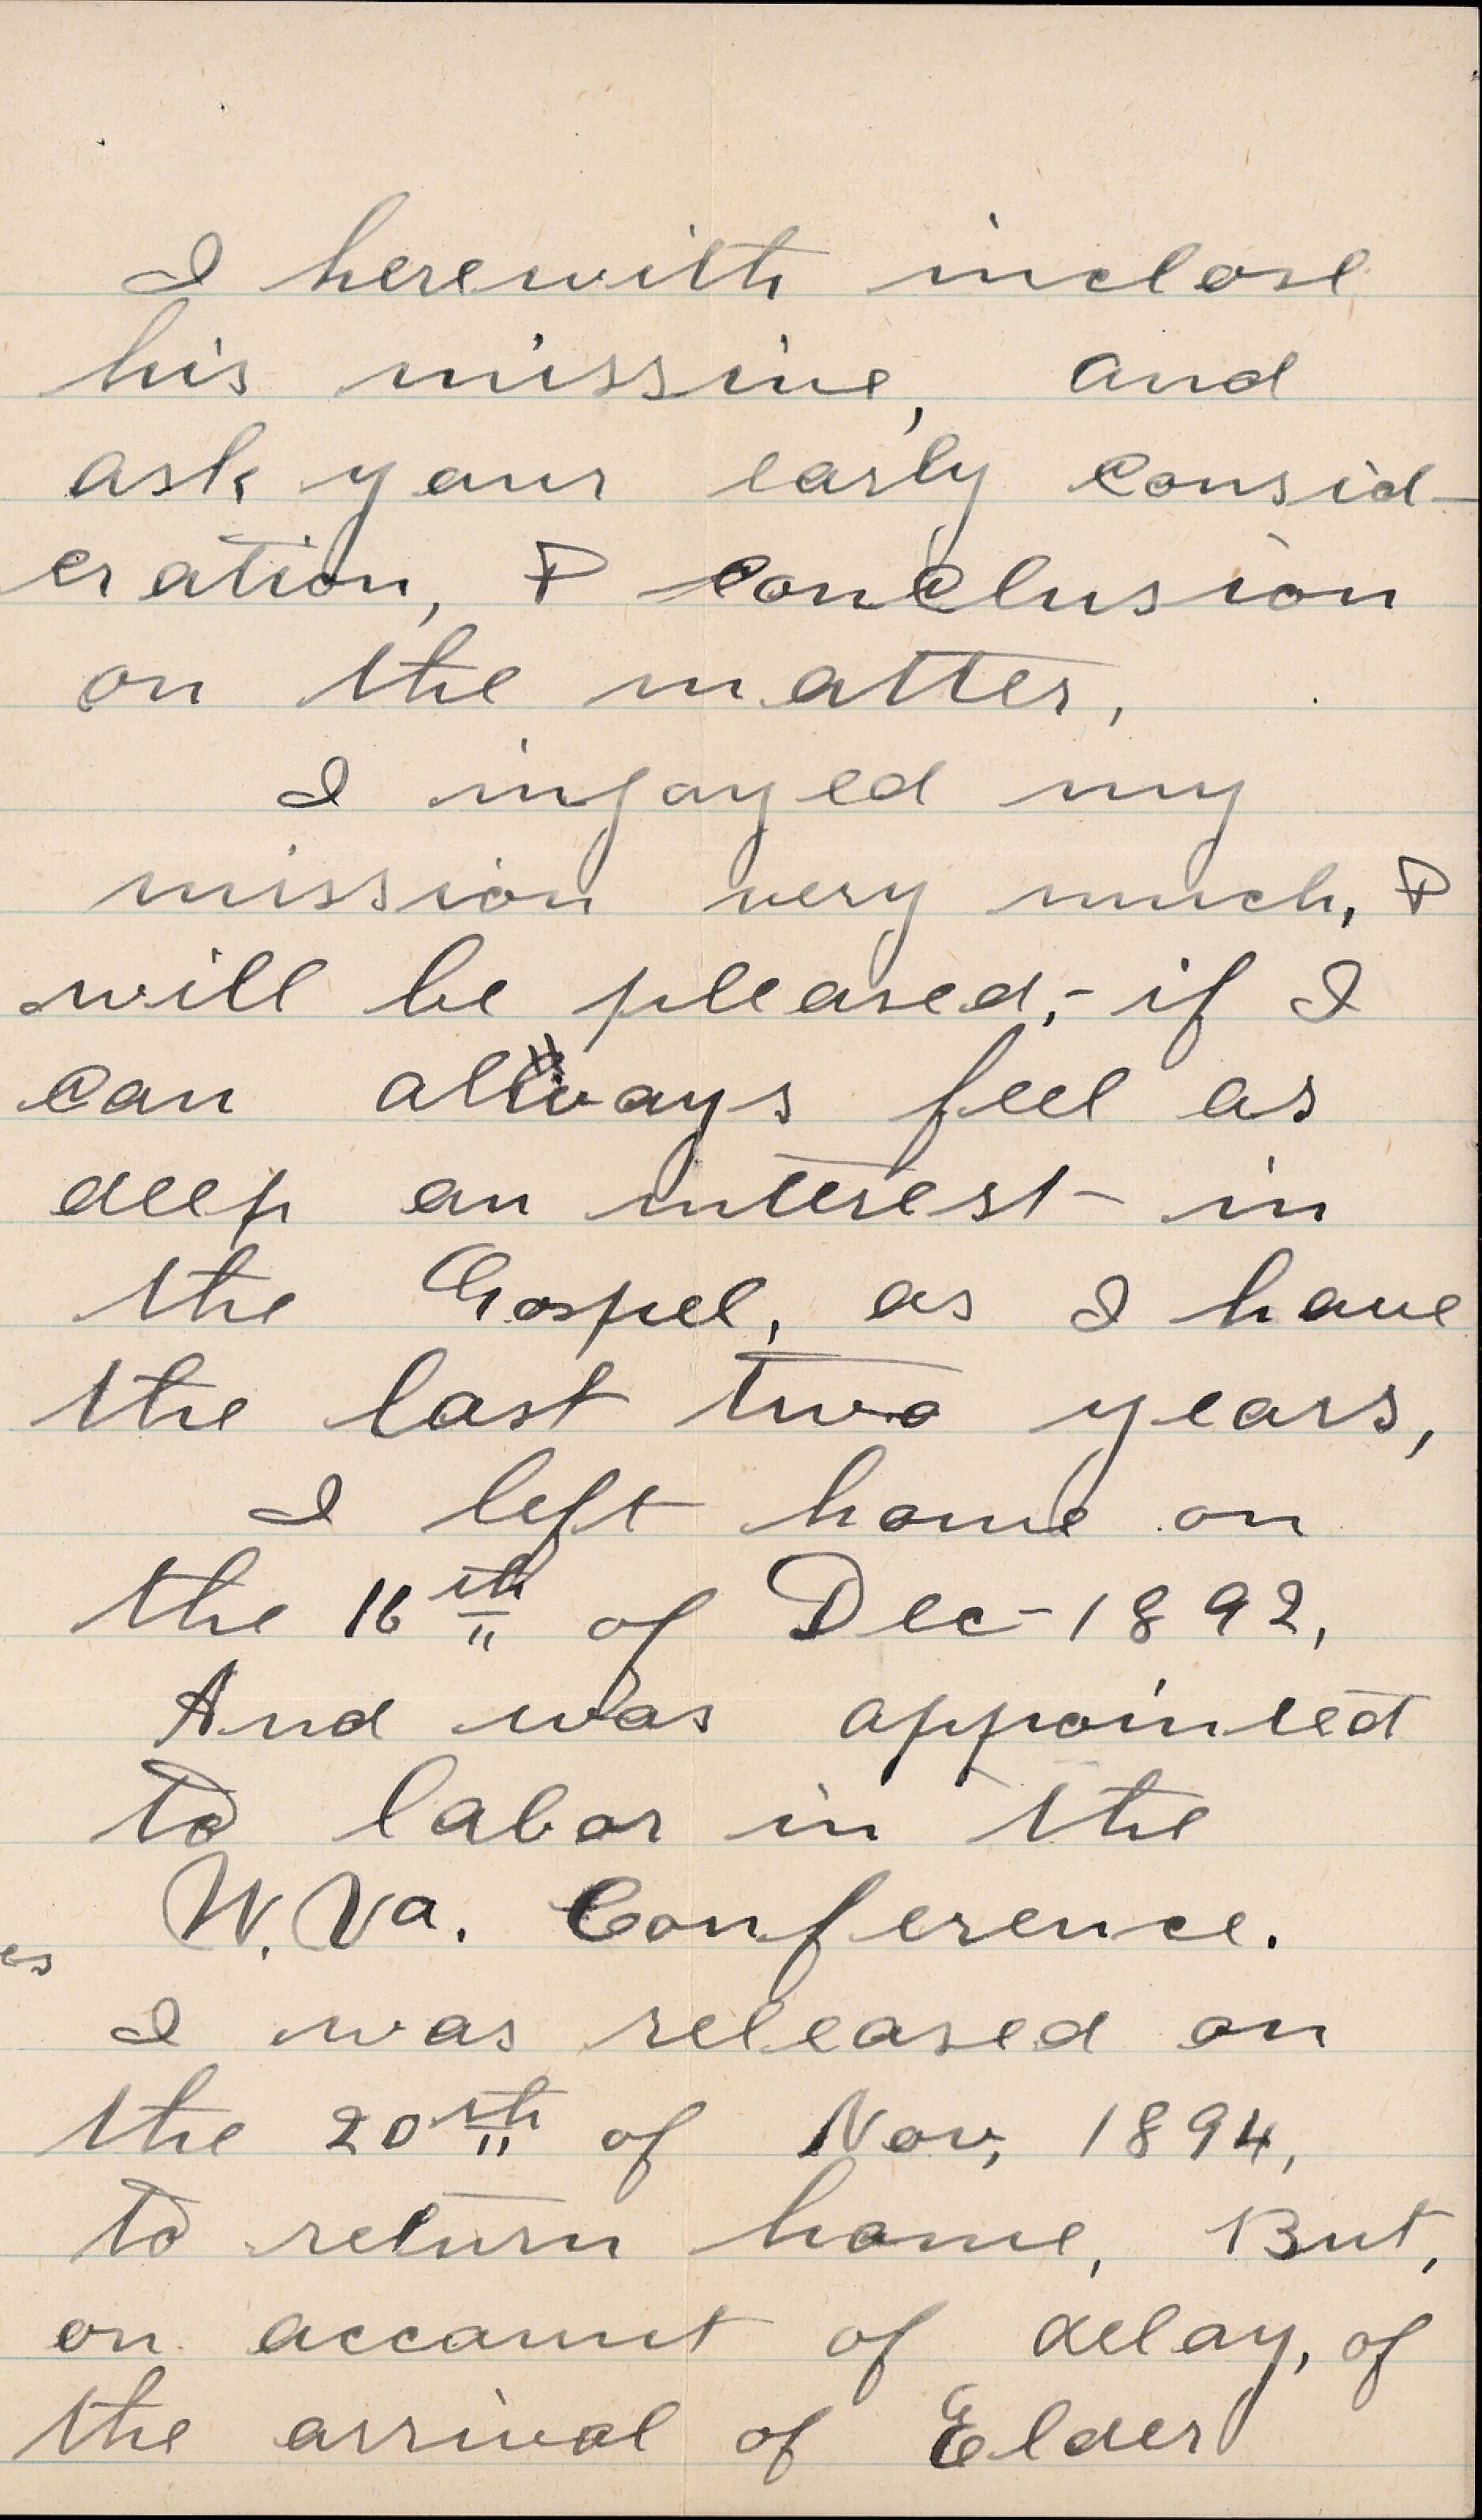 I herewith inclose
his missive, and
ask your early consid-
eration, & conclusion
on the matter.
I injoyed my
mission very much, &
will be pleased,- if I
can always feel as
deep an interest in
the Gospel, as I have
the last two years,
I left home on
the 16th of Dec-1892,
And was appointed
to labor in the
W. Va. Conference.
es
I was released on
the 20th of Nov, 1894,
to return home, But,
on account of delay, of
the arrival of Elder